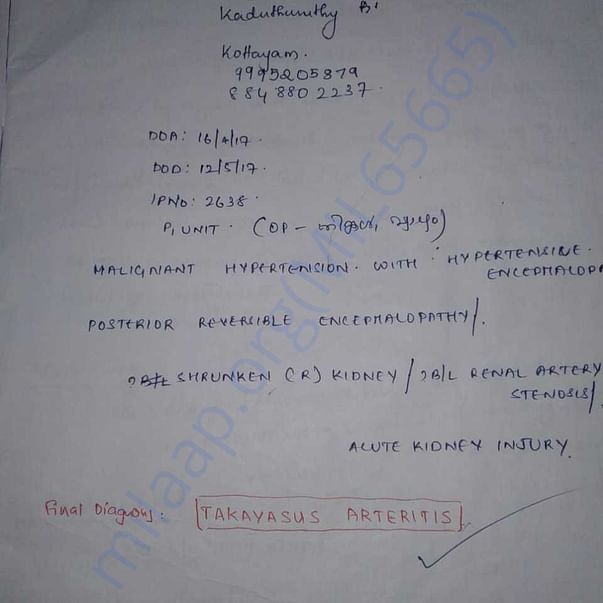 Kaduthuruthy
Kottayam.
9995205879
8848802237.
DOA: 16/4/17.
DOD: 12/5/17.
IPNo: 2638.
P, UNIT. (OP - തിങ്കൾ, വ്യാഴം)
MALIGNANT HYPERTENSION. WITH HYPERTENSIVE.
ENCEPHALOPA
POSTERIOR REVERSIBLE ENCEPHALOPATHY/.
SHRUNKEN (R) KIDNEY / ?B/L RENAL ARTERY
STENOSIS/.
ACUTE KIDNEY INJURY.
Final Diagnosis: TAKAYASUS ARTERITIS
milaap.org(MIL65665)